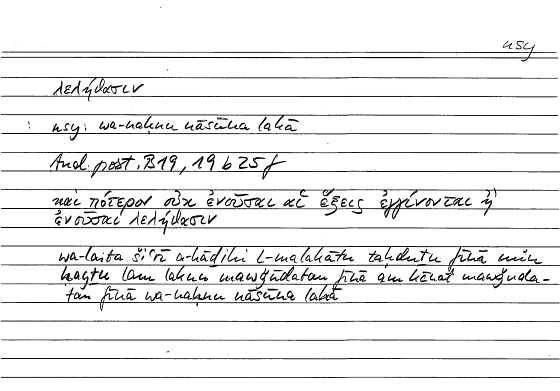 nsy
λελήθασιν
: nsy: wa-naḥnu nāsūna lahā
And. post. B19, 19 b 25 f
καὶ πότερον οὐκ ἐνοῦσαι αἱ ἕξεις ἐγγίνονται ἢ
ἐνοῦσαι λελήθασιν
wa-laita šiʿrī a-hādihi l-malakātu taḥdutu fīnā min
ḥaytu lam takun mawǧūdatan fīnā am kānat mawǧuda-
tan fīnā wa-naḥnu nāsūna lahā